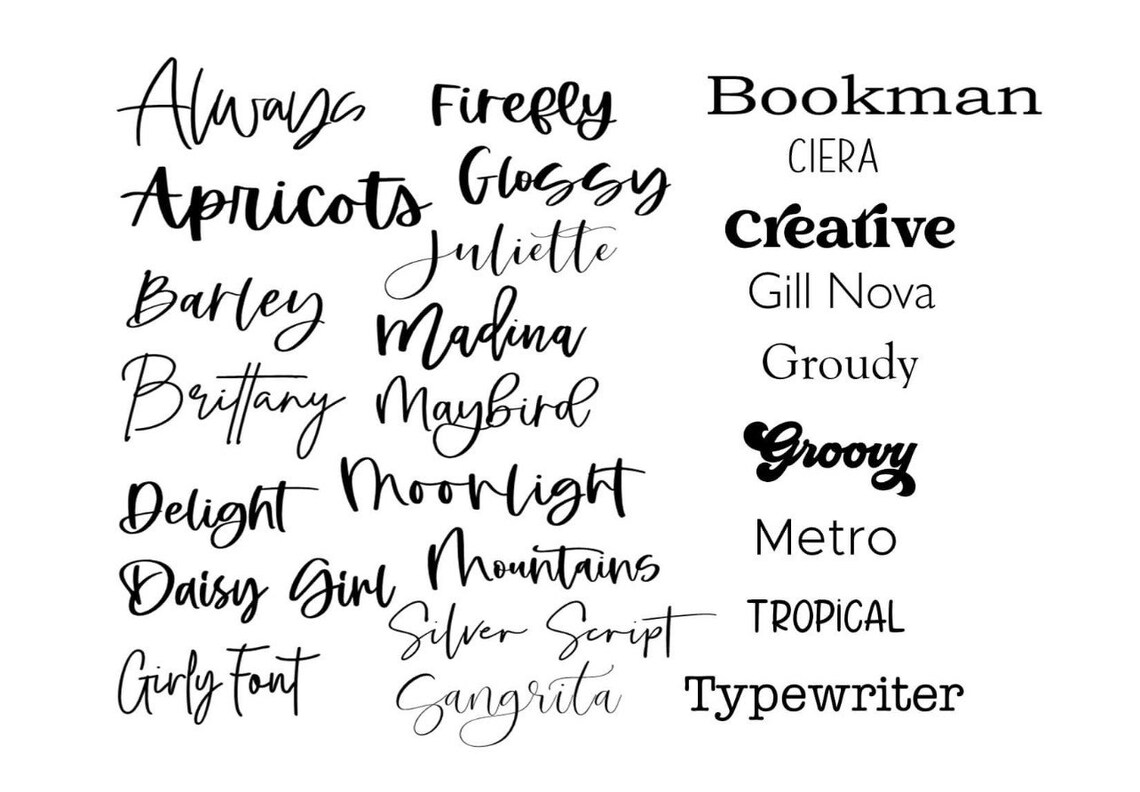 Always
Apricots
Barley
Brittany
Delight
Daisy Girl
Girly Font
Firefly
Glossy
Juliette
Madina
Maybird
Moonlight
Mountains
Silver Script
Sangrita
Bookman
CIERA
Creative
Gill Nova
Groudy
Groovy
Metro
TROPiCAL
Typewriter